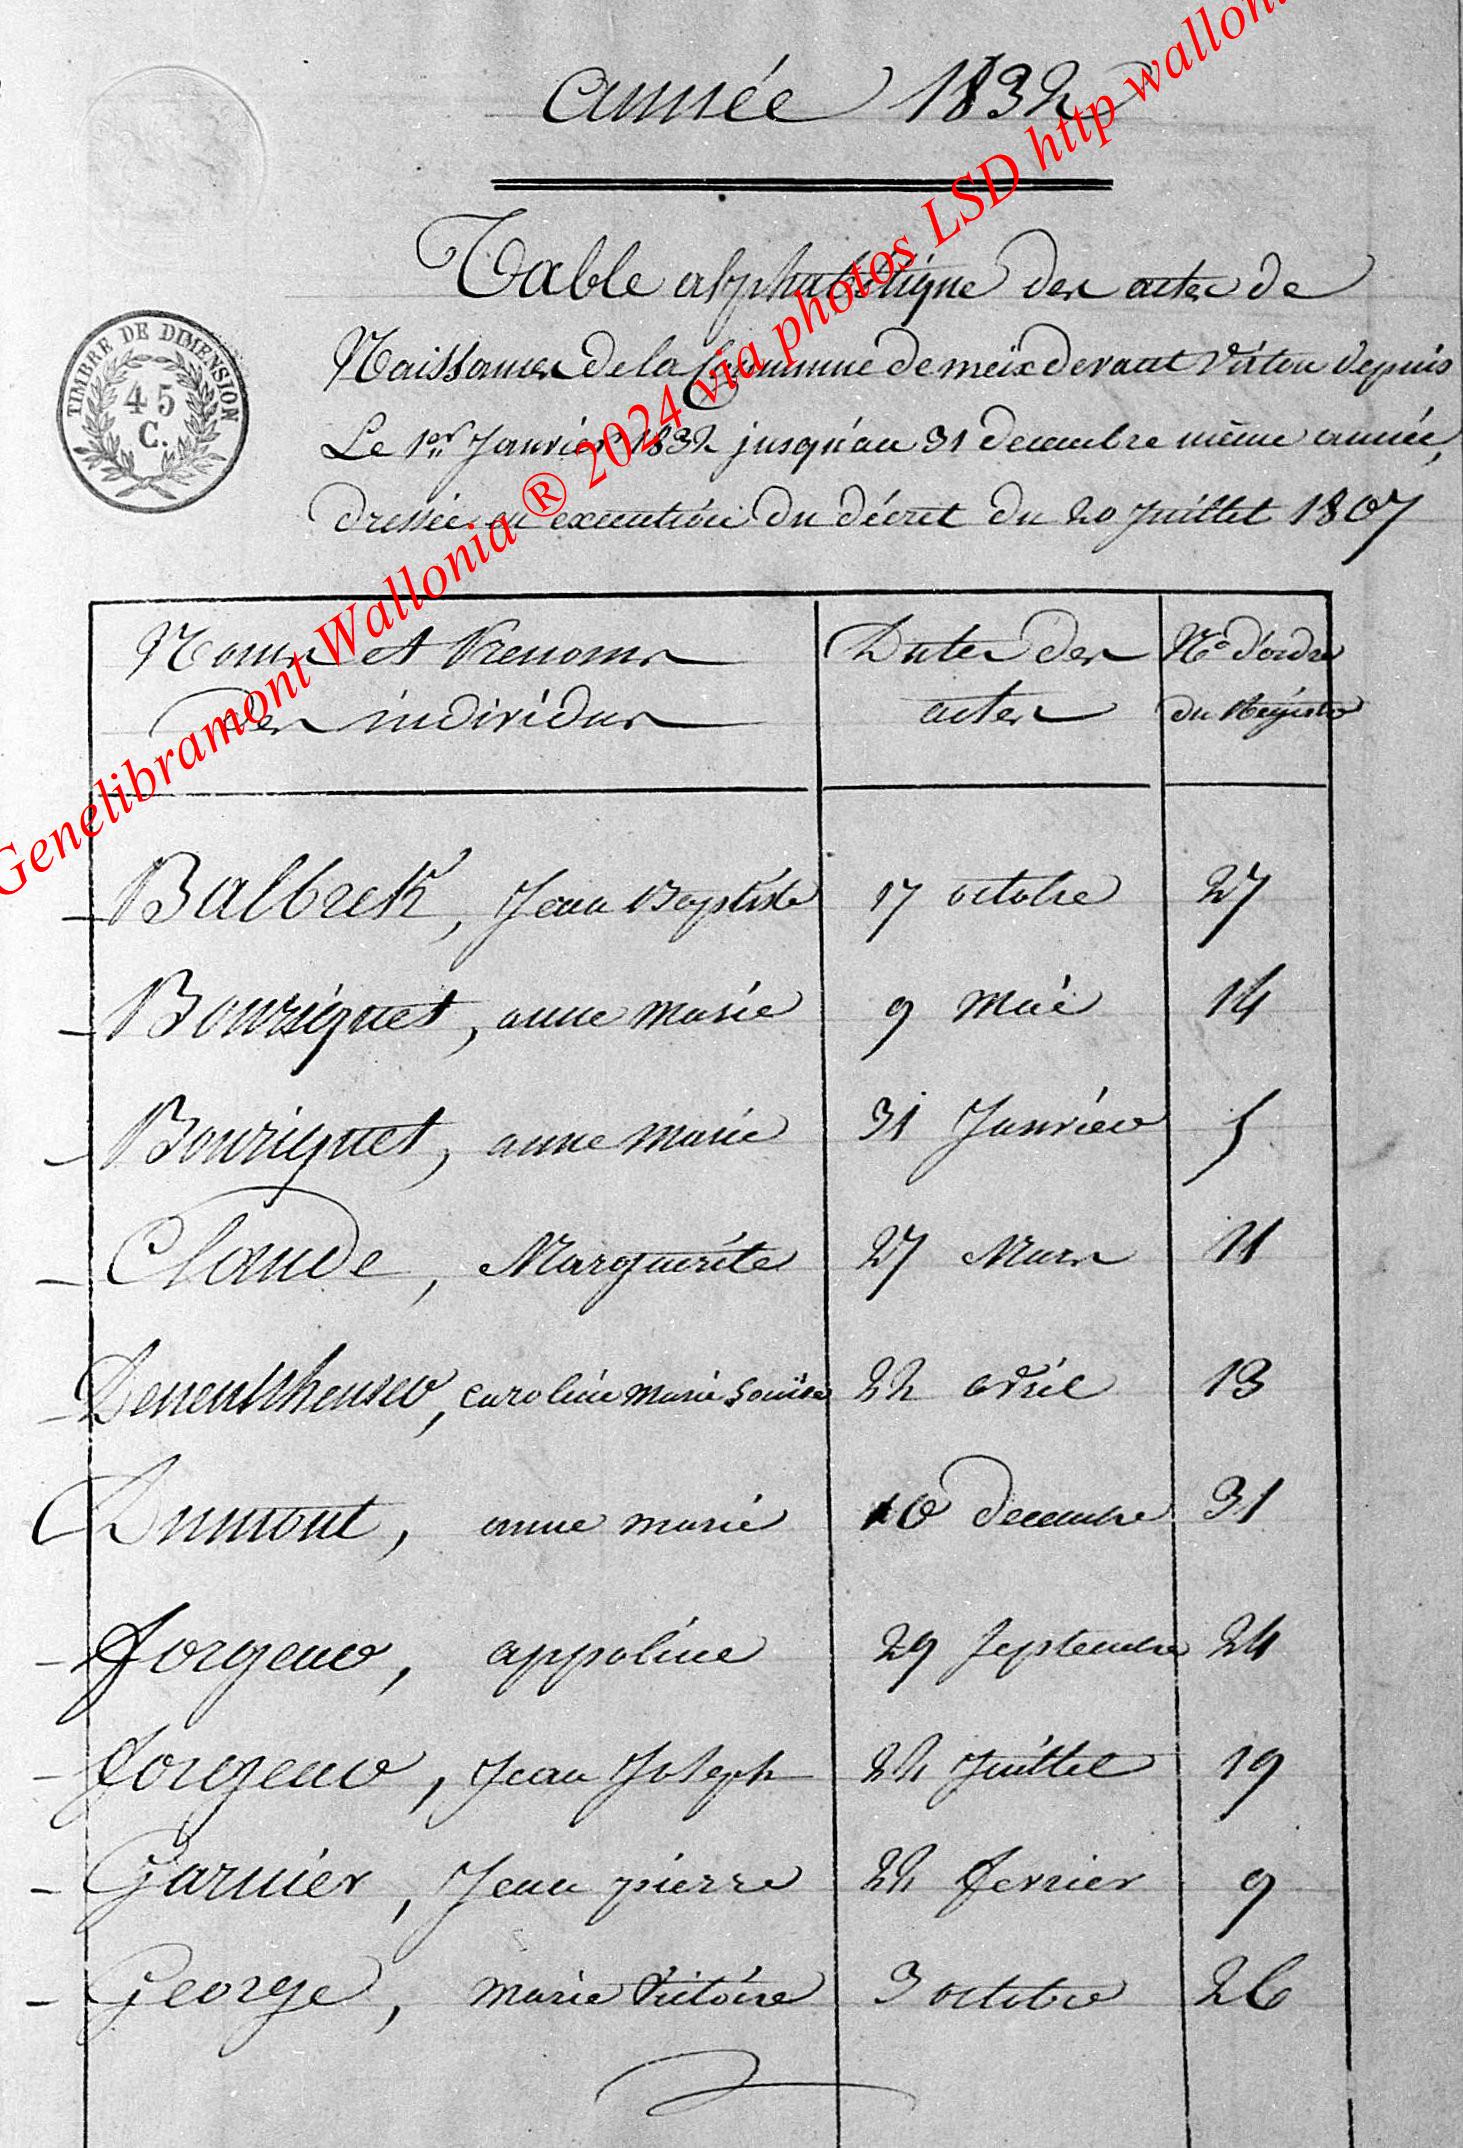 année 1832
Table alphabétique des actes de
Naissances de la Commune de meix devant Virton depuis
Le 1er Janvier 1832 jusqu'au 31 decembre même année,
dressée en exécution du décret du 20 Juillet 1807
TIMBRE DE DIMENSION
45
C.
Noms et Prenoms
des individus
Dates des
actes
No d'ordre
du Régistre
Balbrek, Jean Baptiste 17 octobre 27
Bouriguet, anne marie 9 Mai 14
Bouriguet, anne marie 31 Janvier 5
Claude, Marguerite 27 Mars 11
caroline marie Louise 22 avril 13
Dumont, anne marie 10 decembre 31
forgeur, appoline 29 septembre 24
forgeur, Jean Joseph 24 Juillet 19
Garnier, Jean pierre 24 fevrier 9
George, marie Victoire 3 octobre 26
Genelibramont Wallonia ® 2024 via photos LSD http wallon